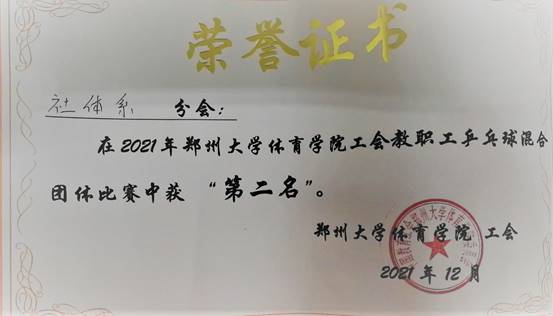 荣誉证书
社体系 分会：
在2021年郑州大学体育学院工会教职工乒乓球混合
团体比赛中获 “第二名”。
郑州大学体育学院 工会
2021年12月